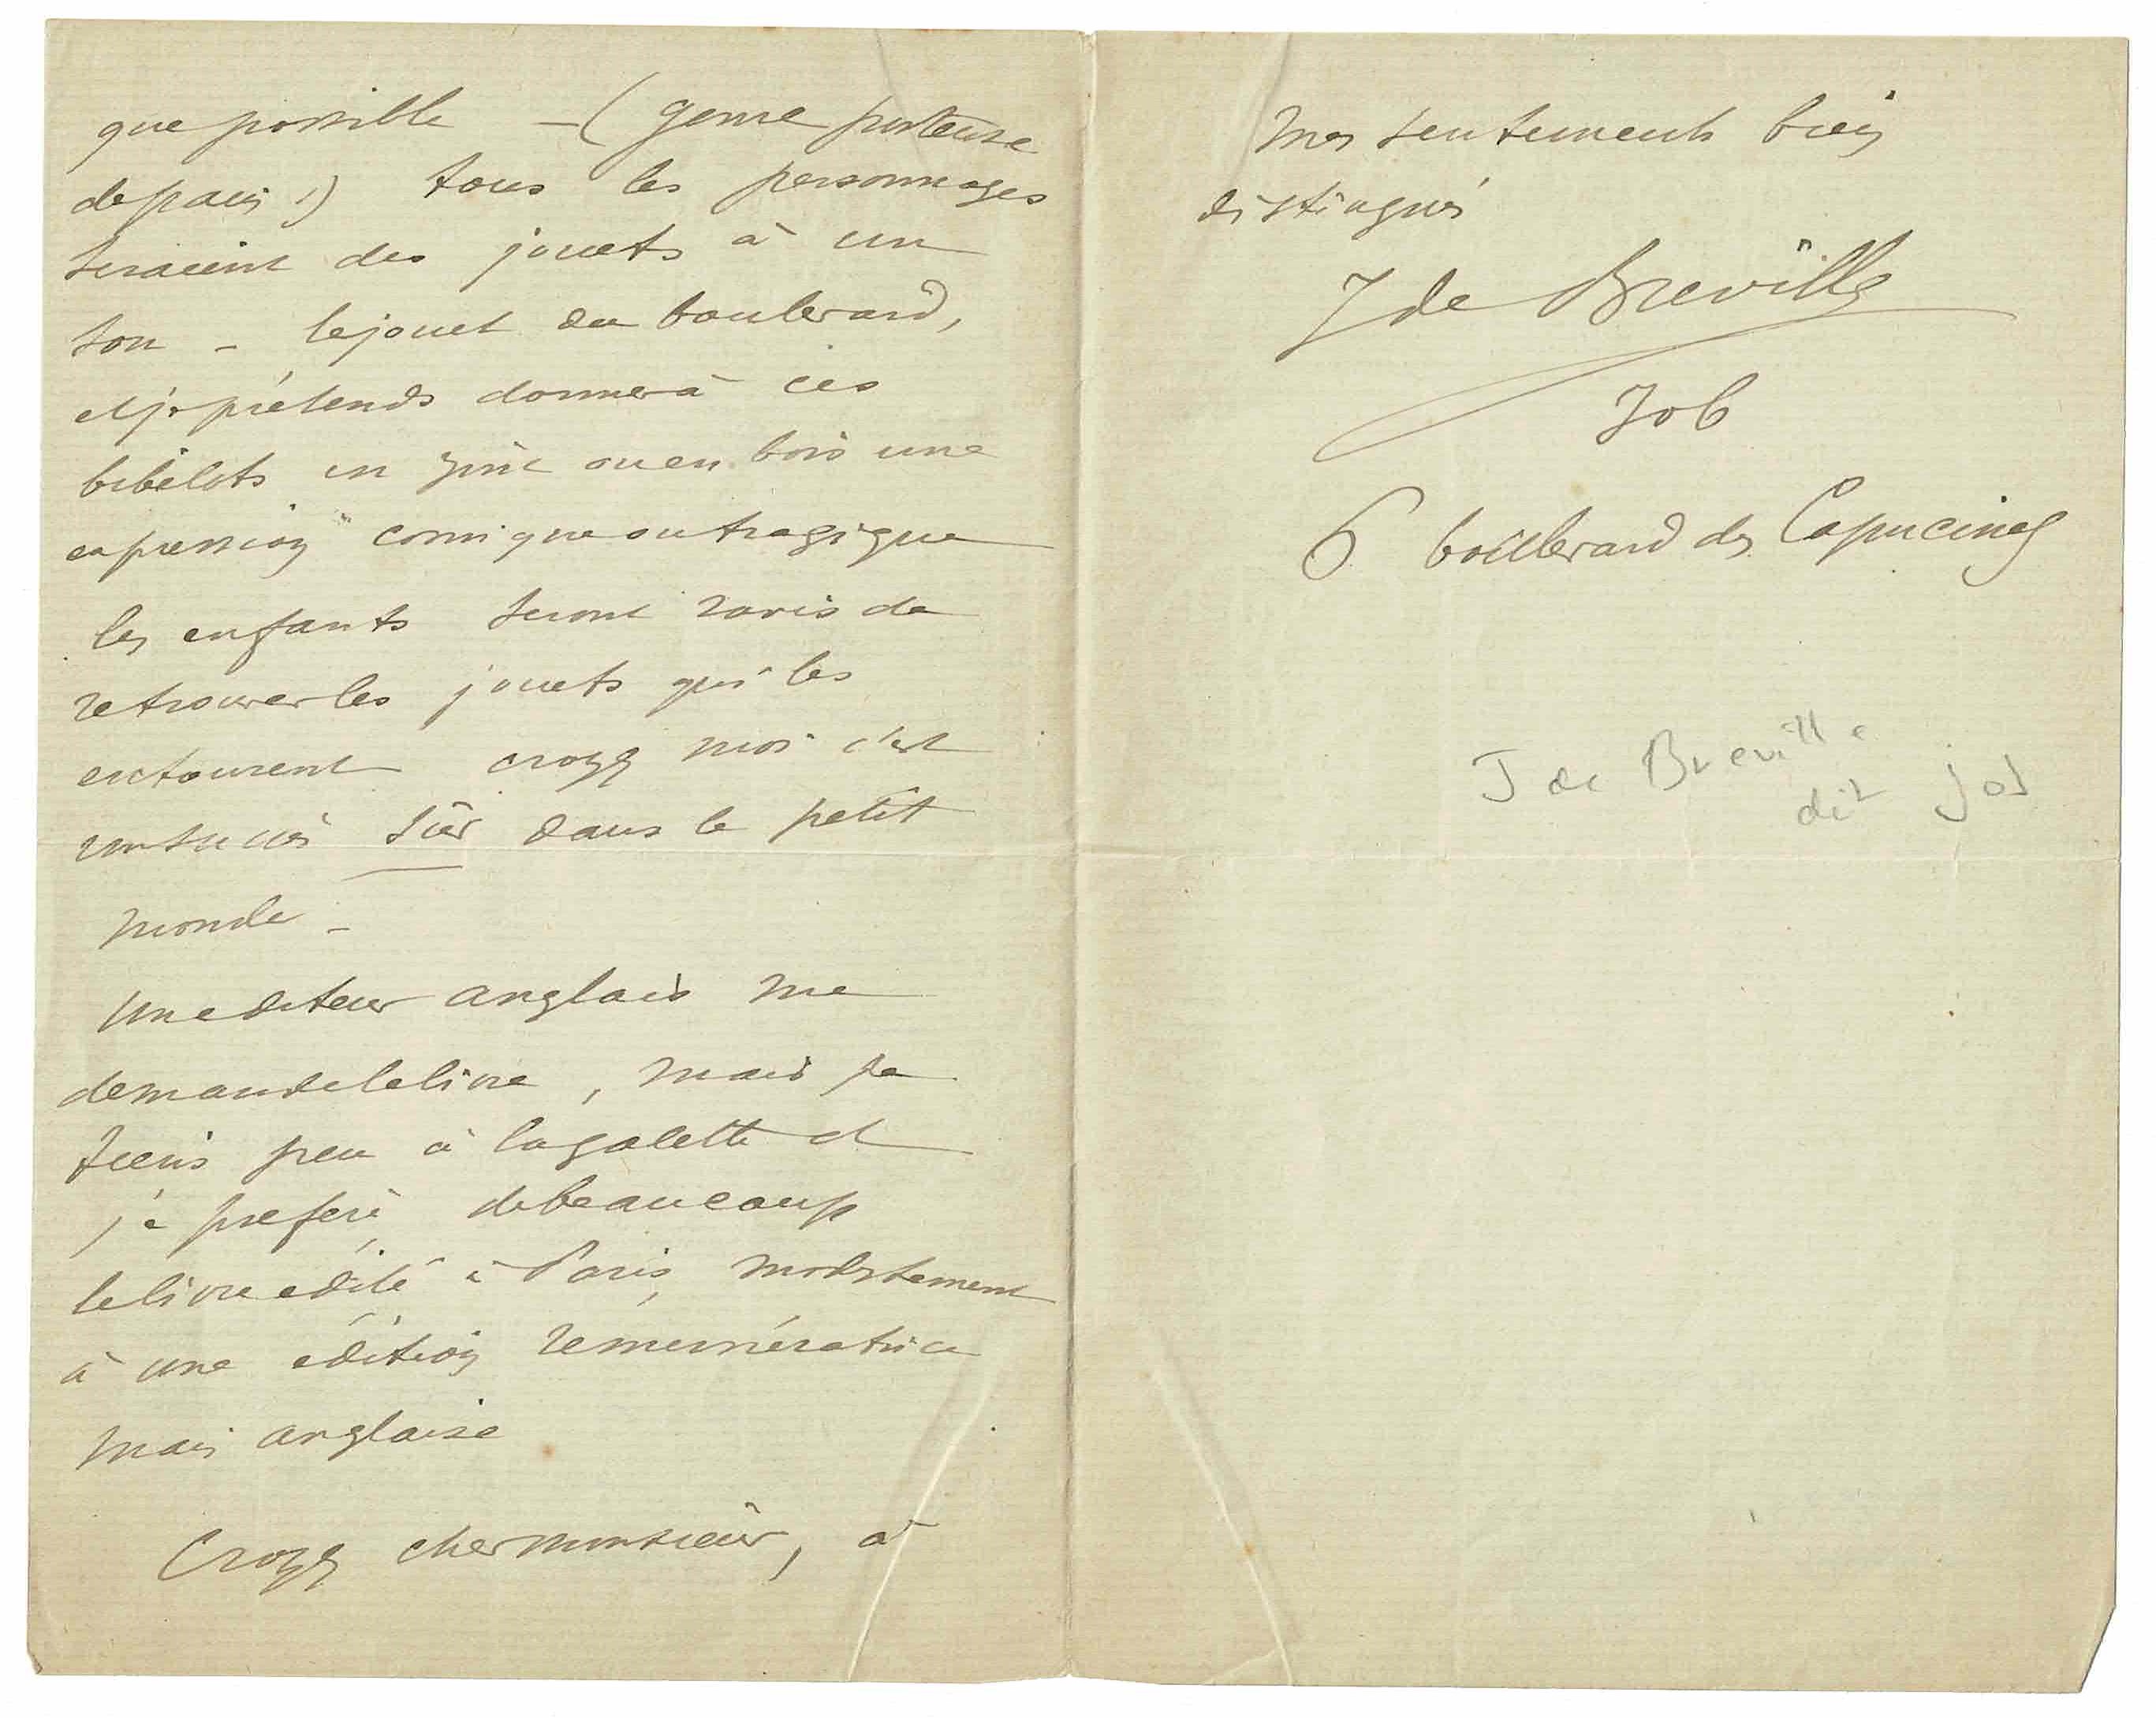 que possible — (genre porteuse
de pain !) tous les personnages
seraient des jouets à un
sou – le jouet du boulevard,
et je prétends donner à ces
bibelots en zinc ou en bois une
expression comique ou tragique
les enfants seront ravis de
retrouver les jouets qui les
entourent croyez moi c'est
un succès sûr dans le petit
monde –
Un editeur anglais me
demande le livre, mais je
tiens peu à la galette et
je prefère de beaucoup
le livre édité à Paris, modestement
à une édition rémunératrice
mais anglaise
Croyez cher monsieur, à
mes sentiments bien
distingués
J de Breville
Job
6 boulevard des Capucines
J de Breville
dit Job